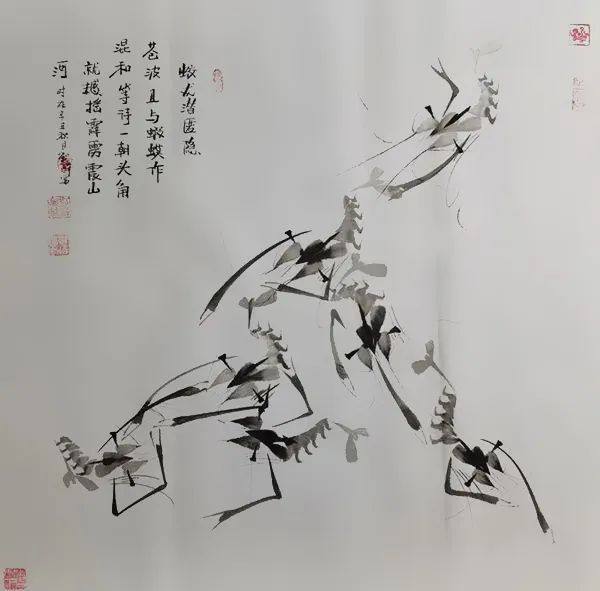 蛟龙潜匿隐
苍波且与蝦蟆作
混和等待一朝头角
就撼摇霹雳震山
河 时在辛丑秋月写